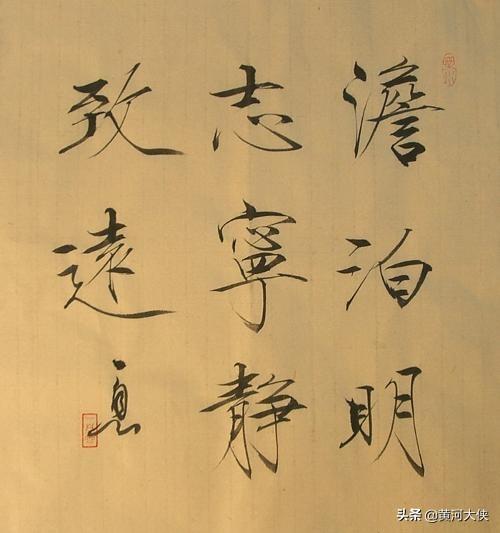 澹泊明
志寧靜
致遠
头条 @黄河大侠